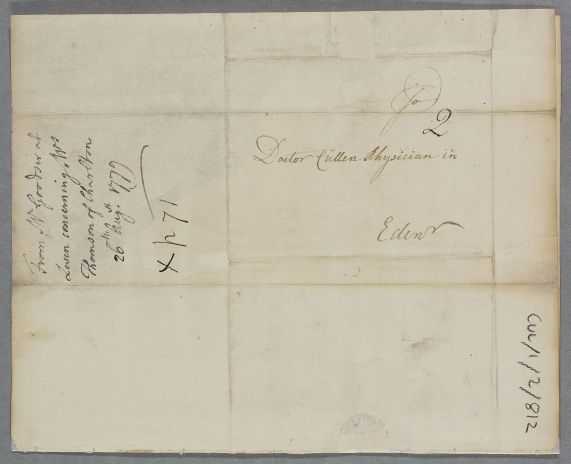 To
2
Doctor Cullen Physician in
Edenr
From Mr Goodsir at
Leven concerning Mrs
Thomson of Charlton
26th Augt 1779
X p 71
CUL/1/2/812